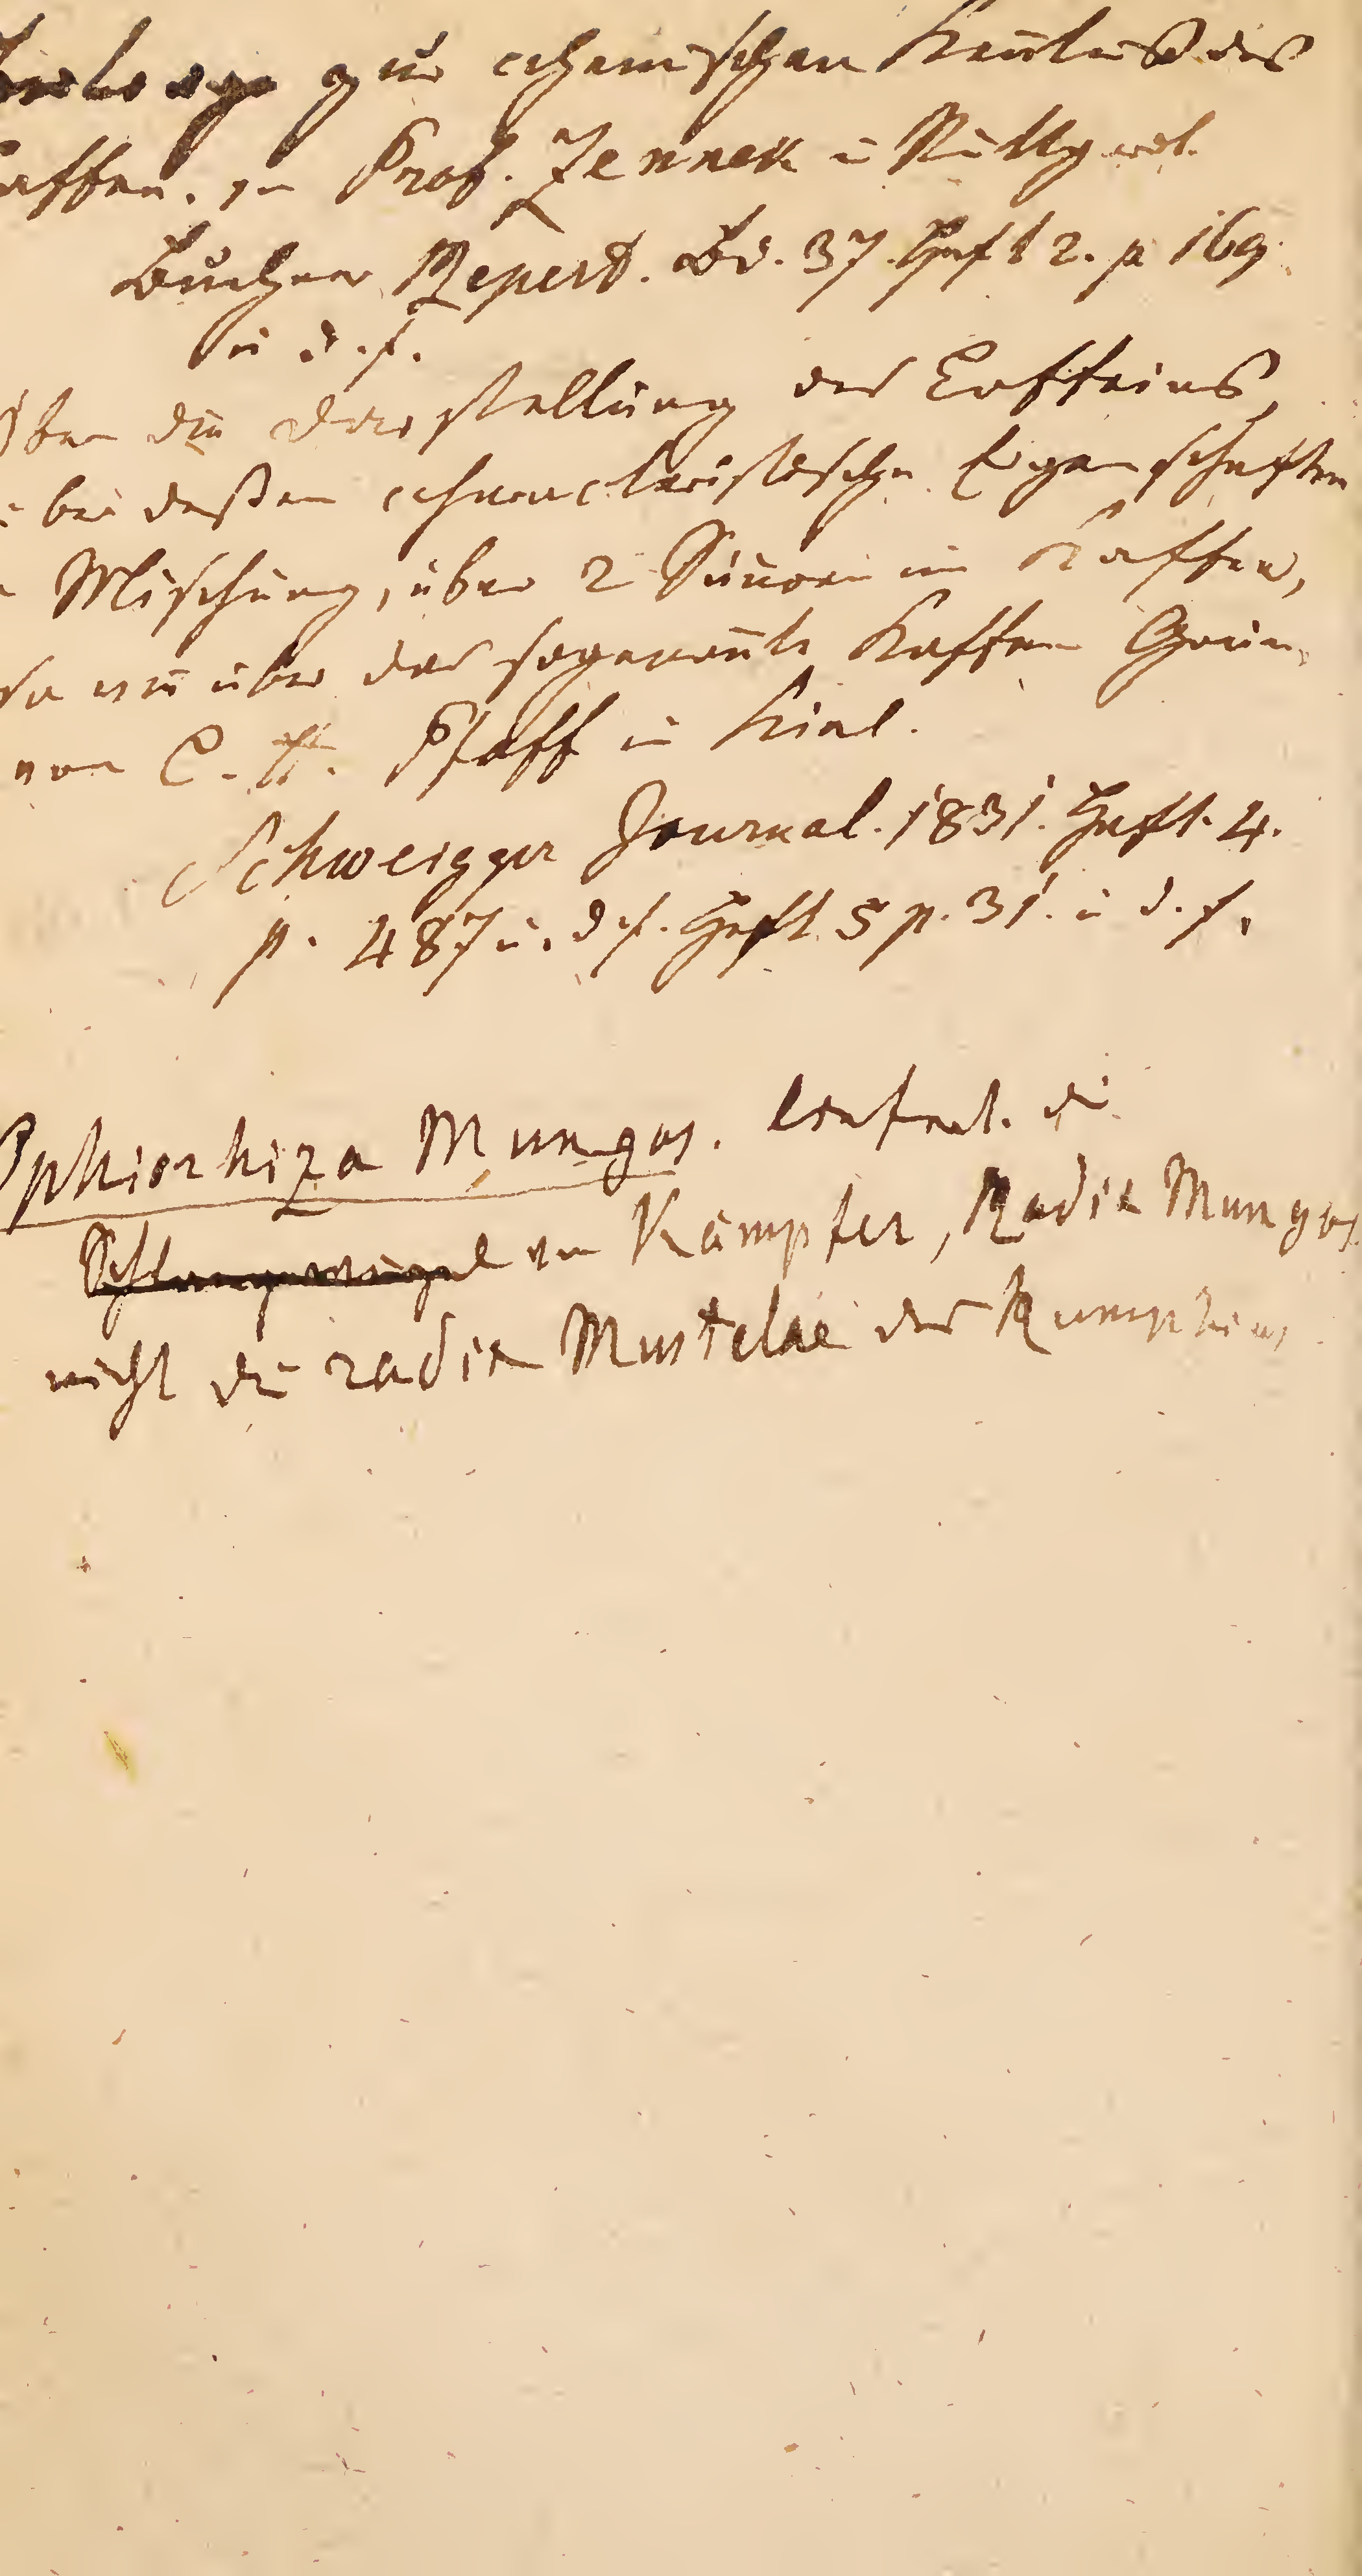 zur chemischen Kentniß des
Kaffee. von Prof. Zennek in Stuttgardt.
Buchner Repert. Bd. 37. Heft 2. p 169.
u d. f.
Über die Darstellung des Caffeins,
über deßen characteristische Eigenschaften
Mischung, über 2 Säuren im Kaffee,
so wie über das sogenante Kaffee Grün,
von C. H. Pfaff in Kiel.
Schweigger Journal. 1831. Heft. 4.
p. 487 u. d f. Heft 5 p. 31. u d. f.
Ophiorhiza Mungos. die
von Kämpfer, Radix Mungos
nicht die radix Mustelae des Rumphius